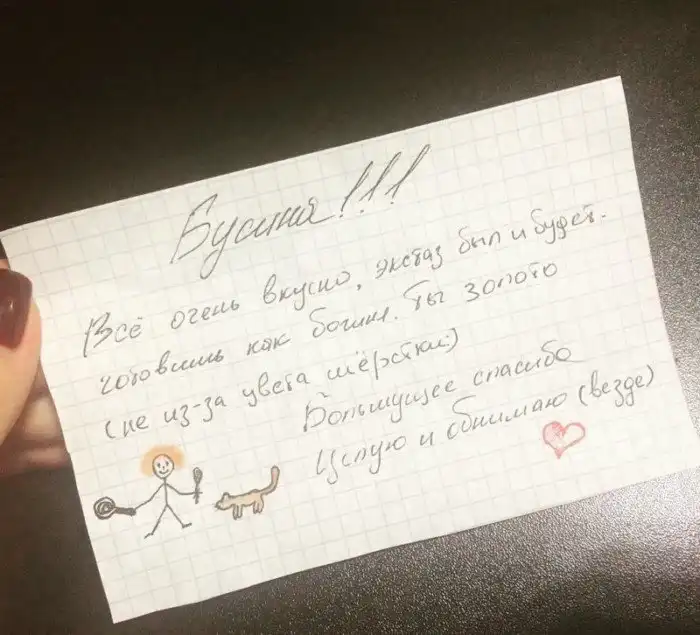 Бусина!!!
Всё очень вкусно, экстаз был и будет.
готовишь как богиня. Ты золото
(не из-за цвета шёрстки)
Большущее спасибо
Целую и обнимаю (везде)